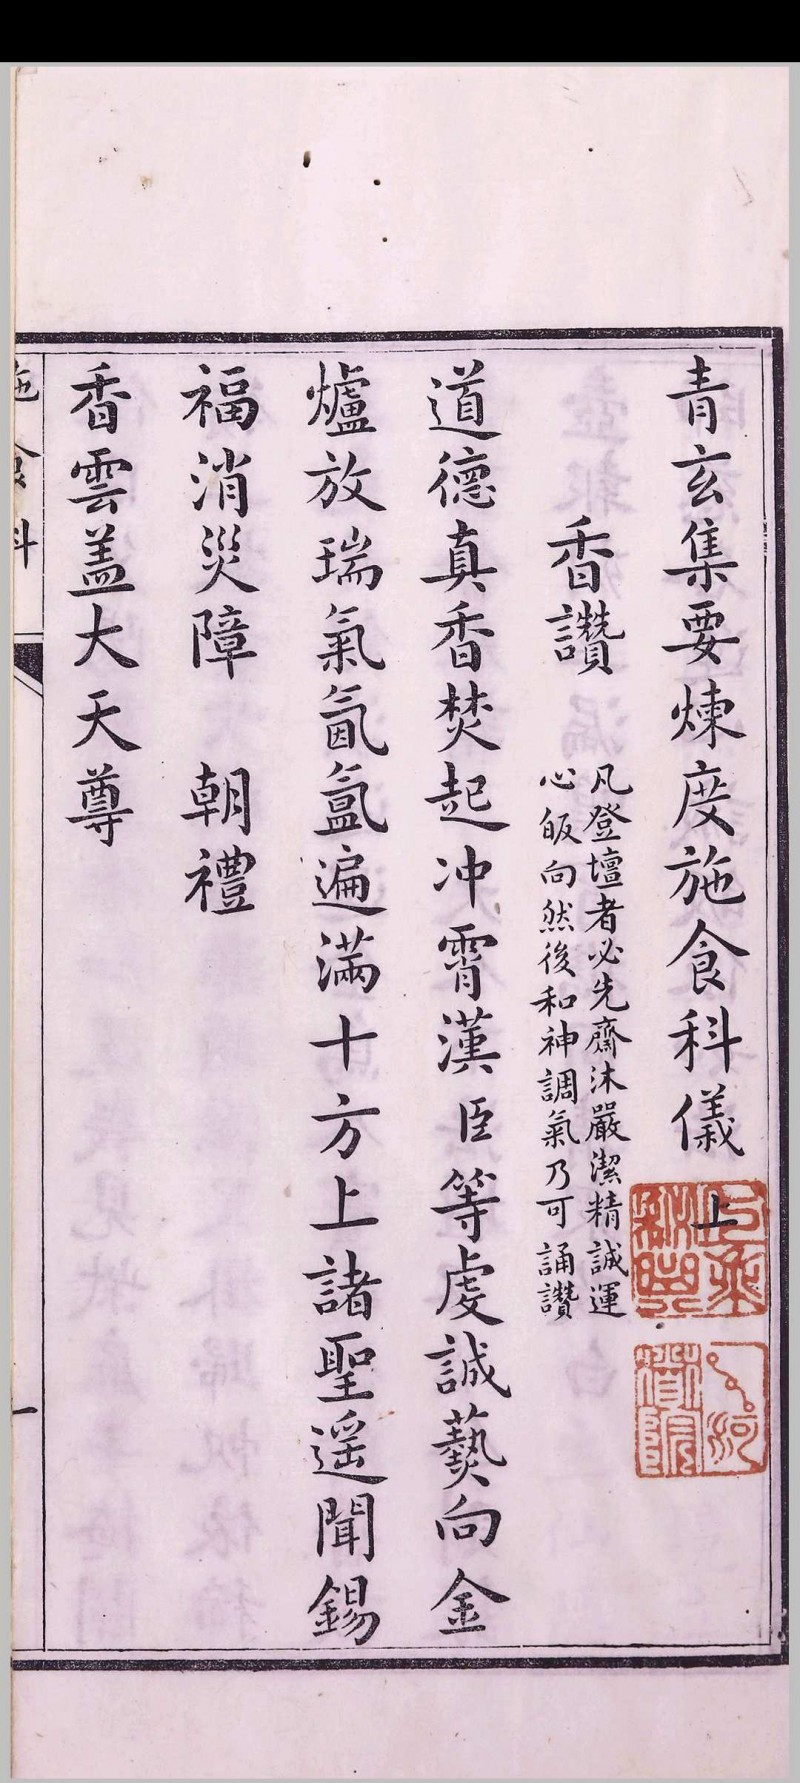 青玄集要煉度施食科儀上
香讚
凡登壇者必先齋沐嚴潔精誠運
心皈向然後和神調氣乃可誦讚
道德真香焚起冲霄漢臣等虔誠爇向金
爐放瑞氣氤氳遍滿十方上諸聖遥聞錫
福消災障　朝禮
香雲盖大天尊
施食科
一